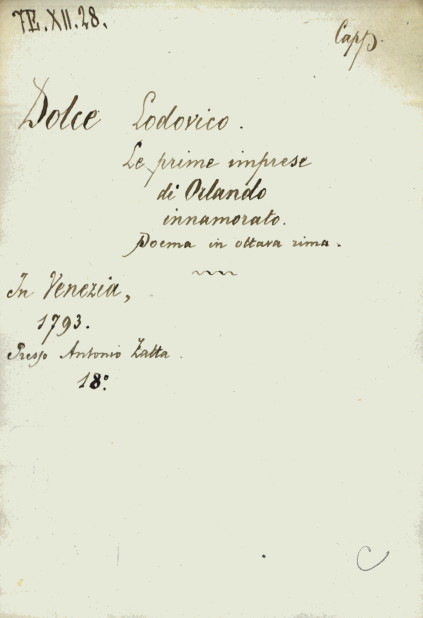 7E.XII.28.
Capp.
Dolce Lodovico.
Le prime imprese
di Orlando
innamorato.
Poema in ottava rima.
In Venezia,
1793.
Presso Antonio Zatta.
18°.
C